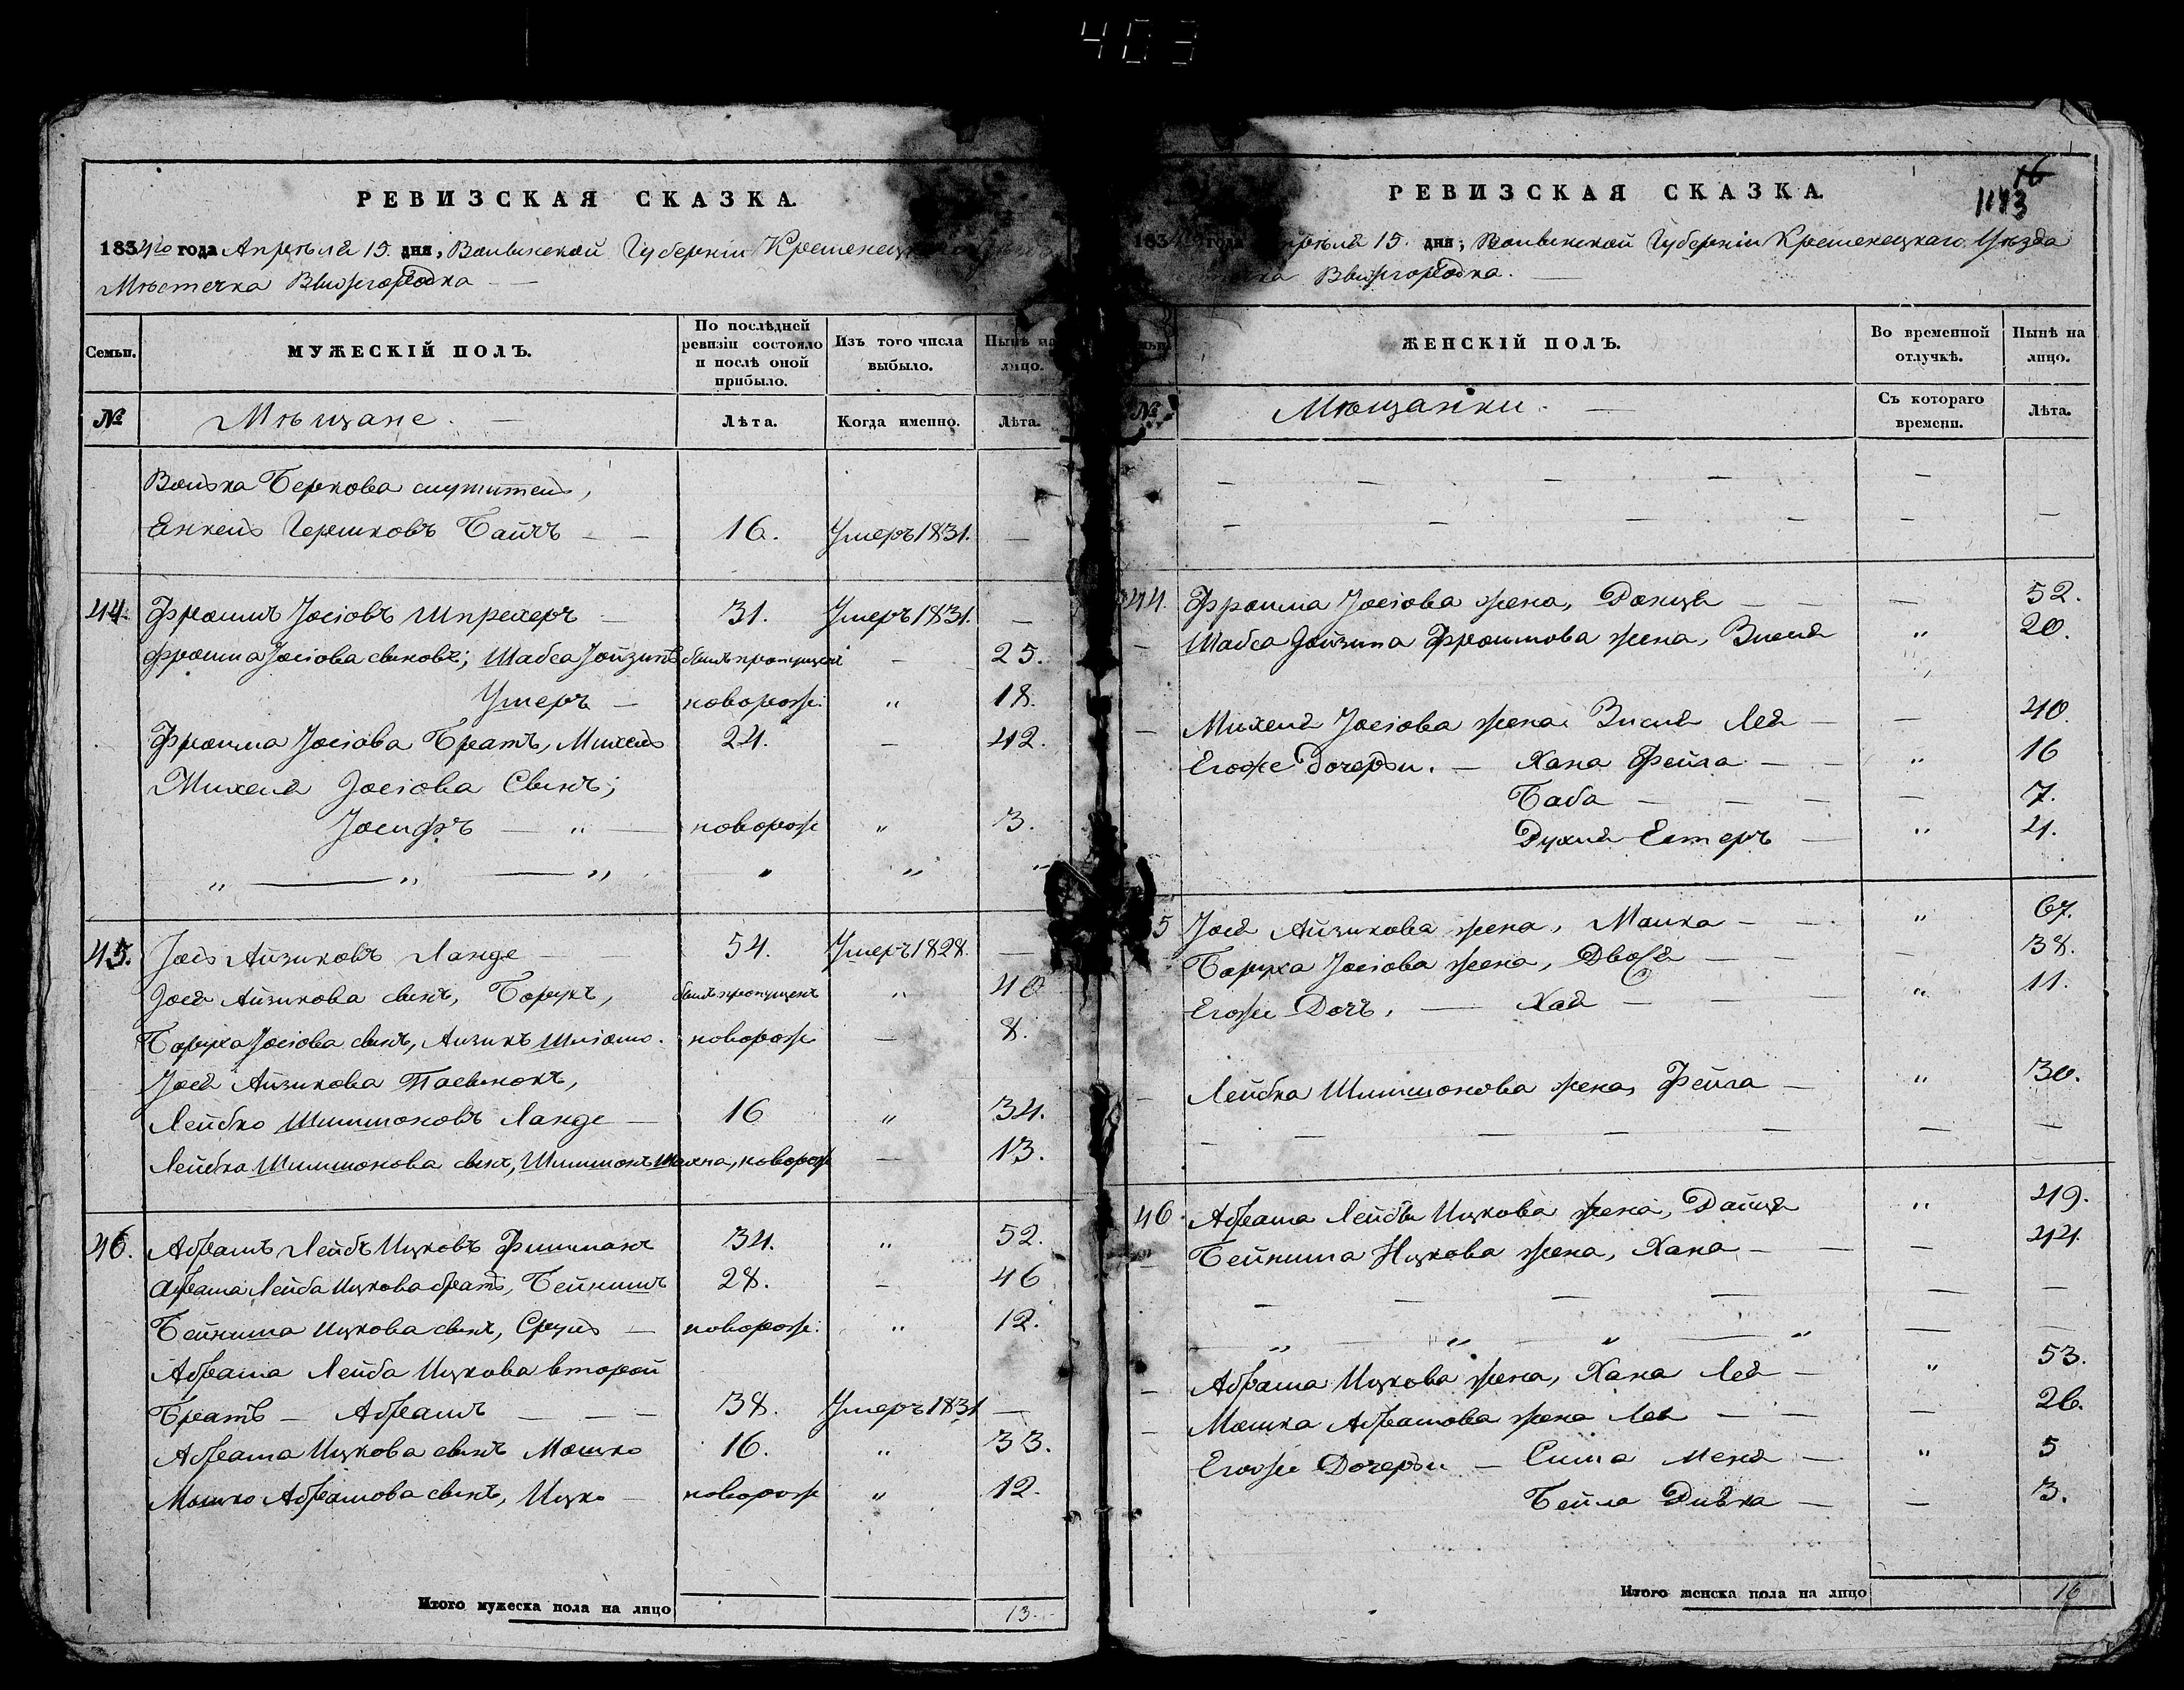 403
РЕВИЗСКАЯ СКАЗКА.
1834го года Апрѣля 15. дня, Волынской Губерніи Кременецкаго
Мѣстечка Вышгородка —
Семьи.
МУЖЕСКІЙ ПОЛЪ.
По послѣдней ревизіи состояло и послѣ оной прибыло.
Изъ того числа выбыло.
Нынѣ на лицо.
№
Мѣщане. —
Лѣта.
Когда именно.
Лѣта.
Волька Беркова служитель,
Енкель Гершковъ — — 16. Умеръ 1831. —
44. Фроимъ Іосіовъ Шпрехеръ — 31. Умеръ 1831. —
Фроима Іосіова сыновья; Шабса Іойзипъ былъ пропущенъ — 25.
Умеръ — новорож: „ 18.
Фроима Іосіова Братъ, Михель 24. — 42.
Михеля Іосіова Сынъ;
Іосифъ — „ — новорож „ 3.
„ — „ — „ „ „ „
45. Іось Айзиковъ Ланде — — 54. Умеръ 1828. —
Іося Айзикова сынъ, Борухъ, былъ пропущенъ „ 40
Боруха Іосіова сынъ, Айзикъ Шліомо. новорож — 8.
Іося Айзикова Пасынокъ,
Лейбко Шимшоновъ Ланде — 16 „ 34.
Лейбка Шимшонова сынъ, Шимшонъ Шахна, новорож — 13.
46. Абрамъ Лейбъ Ицковъ Фишманъ 34. „ 52.
Абрама Лейба Ицкова братъ, Бейнишъ 28. — 46
Бейниша Ицкова сынъ, Сруль — новорож: „ 12.
Абрама Лейба Ицкова второй
Братъ — Абрамъ — — — 38. Умеръ 1831 —
Абрама Ицкова сынъ Мошко 16. „ 33.
Мошко Абрамова сынъ, Ицко — новорож „ 12.
Итого мужеска пола на лицо 13.
16
1183
РЕВИЗСКАЯ СКАЗКА.
183 года Апрѣля 15. дня, Волынской Губерніи Кременецкаго Уѣзда
Вышгородка. —
ЖЕНСКІЙ ПОЛЪ.
Во временной отлучкѣ.
Нынѣ на лицо.
№
Мѣщанки. —
Съ котораго времени.
Лѣта.
— — — — — —
— — — — — —
44. Фроима Іосіова жена, Донця — — — 52.
— Шабса Іойзипа Фроимова жена, Зисля „ 20.
— Михеля Іосіова жена Зисля Лея — — 40.
Егоже Дочери. — Хана Фейга — — „ 16
Баба — — — — 7.
Рухля Естеръ — „ 4.
5 Іося Айзикова жена, Малка — — „ 67.
Боруха Іосіова жена, Двося — — — 38.
Егоже Дочъ, — Хая — — — „ 11.
— Лейбка Шимшонова жена, Фейга — „ 30.
— — — — — — — —
46. Абрама Лейбы Ицкова жена, Данця „ 49.
— Бейниша Ицкова жена, Хана — — — 44.
— — — — — —
„ — „ — „ — „ — —
— Абрама Ицкова жена, Хана Лея — „ 53.
— Мошка Абрамова жена Лея — — — 26.
Егоже Дочери — Сима Меня — „ 5
Бейла Дивка — — 3.
Итого женска пола на лицо 16